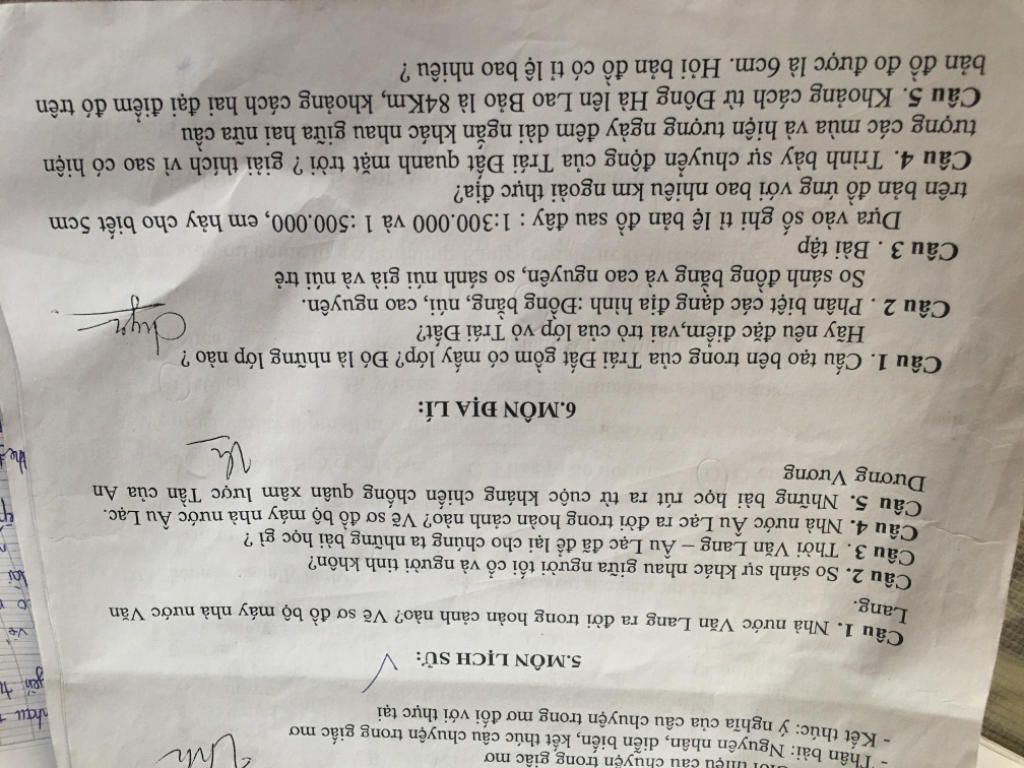 thiệu câu chuyện trong giấc mơ
- Thân bài: Nguyên nhân, diễn biến, kết thúc câu chuyện trong giấc mơ
- Kết thúc: ý nghĩa của câu chuyện trong mơ đối với thực tại
5.MÔN LỊCH SỬ:
Câu 1. Nhà nước Văn Lang ra đời trong hoàn cảnh nào? Vẽ sơ đồ bộ máy nhà nước Văn
Lang.
Câu 2. So sánh sự khác nhau giữa người tối cổ và người tinh khôn?
Câu 3. Thời Văn Lang – Âu Lạc đã để lại cho chúng ta những bài học gì ?
Câu 4. Nhà nước Âu Lạc ra đời trong hoàn cảnh nào? Vẽ sơ đồ bộ máy nhà nước Âu Lạc.
Câu 5. Những bài học rút ra từ cuộc kháng chiến chống quân xâm lược Tần của An
Dương Vương
6.MÔN ĐỊA LÍ:
Câu 1. Cấu tạo bên trong của Trái Đất gồm có mấy lớp? Đó là những lớp nào ?
Hãy nêu đặc điểm,vai trò của lớp vỏ Trái Đất?
Câu 2 . Phân biệt các dạng địa hình :Đồng bằng, núi, cao nguyên.
So sánh đồng bằng và cao nguyên, so sánh núi già và núi trẻ
Câu 3 . Bài tập
Dựa vào số ghi tỉ lệ bản đồ sau đây : 1:300.000 và 1 :500.000, em hãy cho biết 5cm
trên bản đồ ứng với bao nhiêu km ngoài thực địa?
Câu 4. Trình bày sự chuyển động của Trái Đất quanh mặt trời ? giải thích vì sao có hiện
tượng các mùa và hiện tượng ngày đêm dài ngắn khác nhau giữa hai nữa cầu
Câu 5. Khoảng cách từ Đông Hà lên Lao Bảo là 84Km, khoảng cách hai đại điểm đó trên
bản đồ đo được là 6cm. Hỏi bản đồ có tỉ lệ bao nhiêu ?